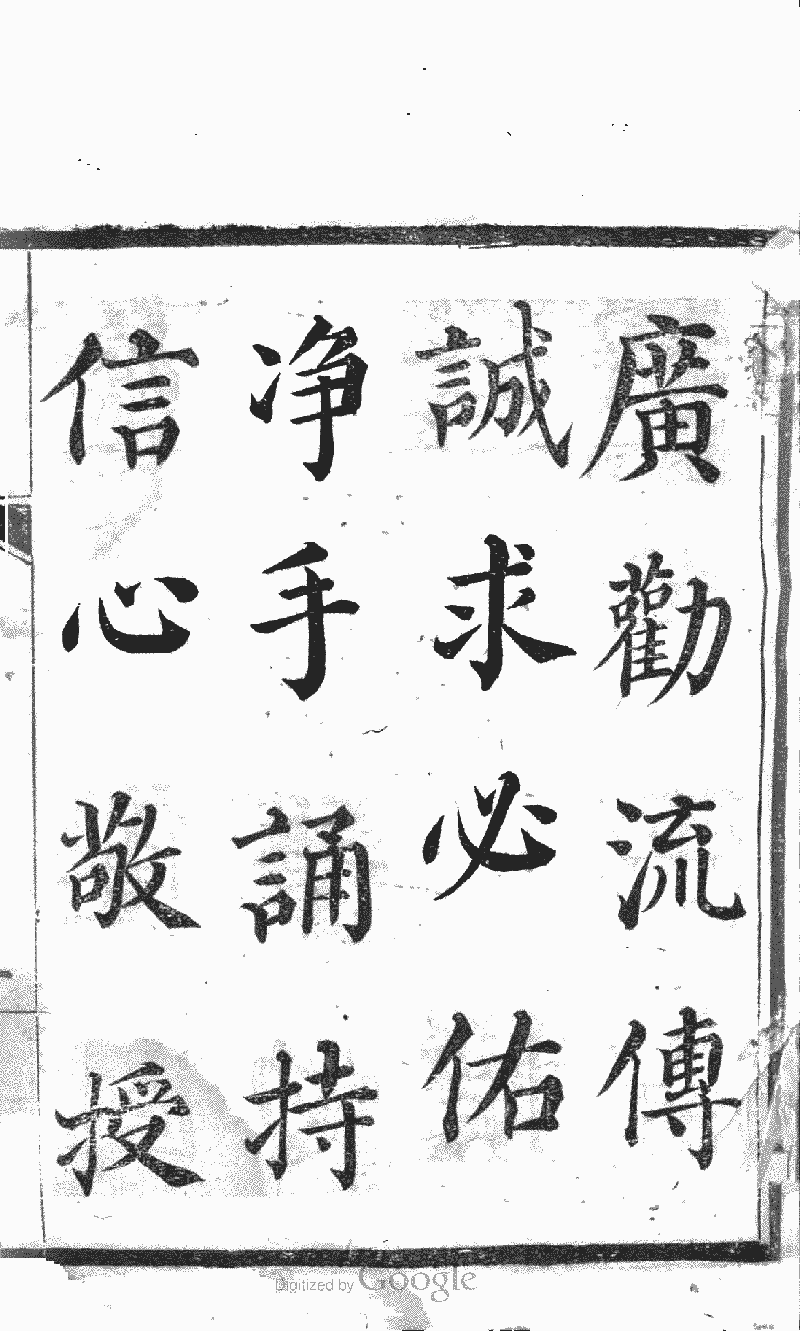 廣勸流傳
誠求必佑
净手誦持
信心敬授
Digitized by Google